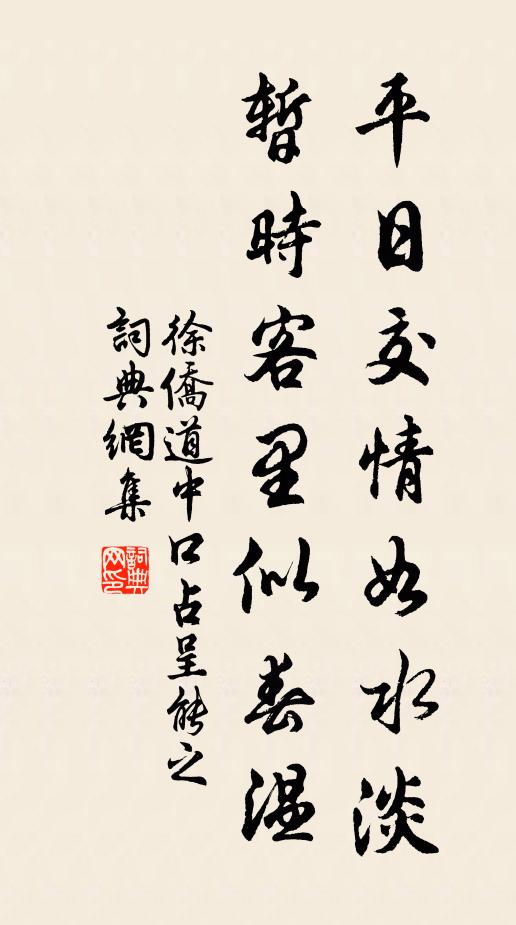 平日交情如水淡
暫時客里似春温
徐僑道中口占呈能之
詞典網集
詞典網印